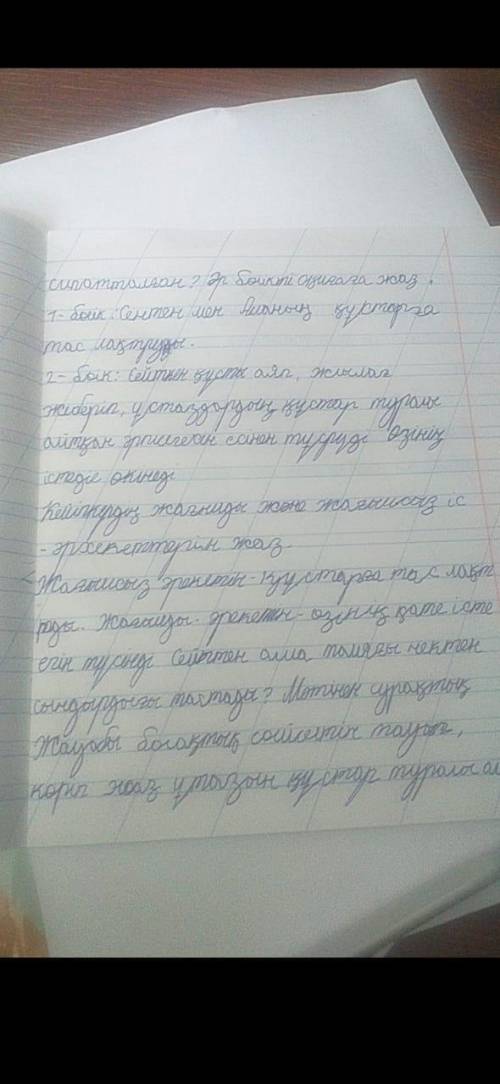 сипатталған? Әр бөлікті оқиғаға жаз.
1- бөлік: Сейтен мен Асанның құстарға
тас лақтруды.
2- бөлік: Сейтен құсты аяп, жылап
жіберіп, ұстаздардың құстар туралы
айтқан әңгімесін есінен түсруді өзінің
істедіе өкінеді
Кейіпкердің жағымды және жағымсыз іс
- әрекеттерін жаз.
Жағымсыз әрекетін - құстарға тас лақт
рады. Жағымды әрекетін - өзінің қате істе
егін түсінді Сейітен алма нектен
сындырдығы тастады? Мәтінен сұрақтың
Жауабы болақтық сөйлемтін тауып,
көріп жаз ұтазын құстар туралы ай